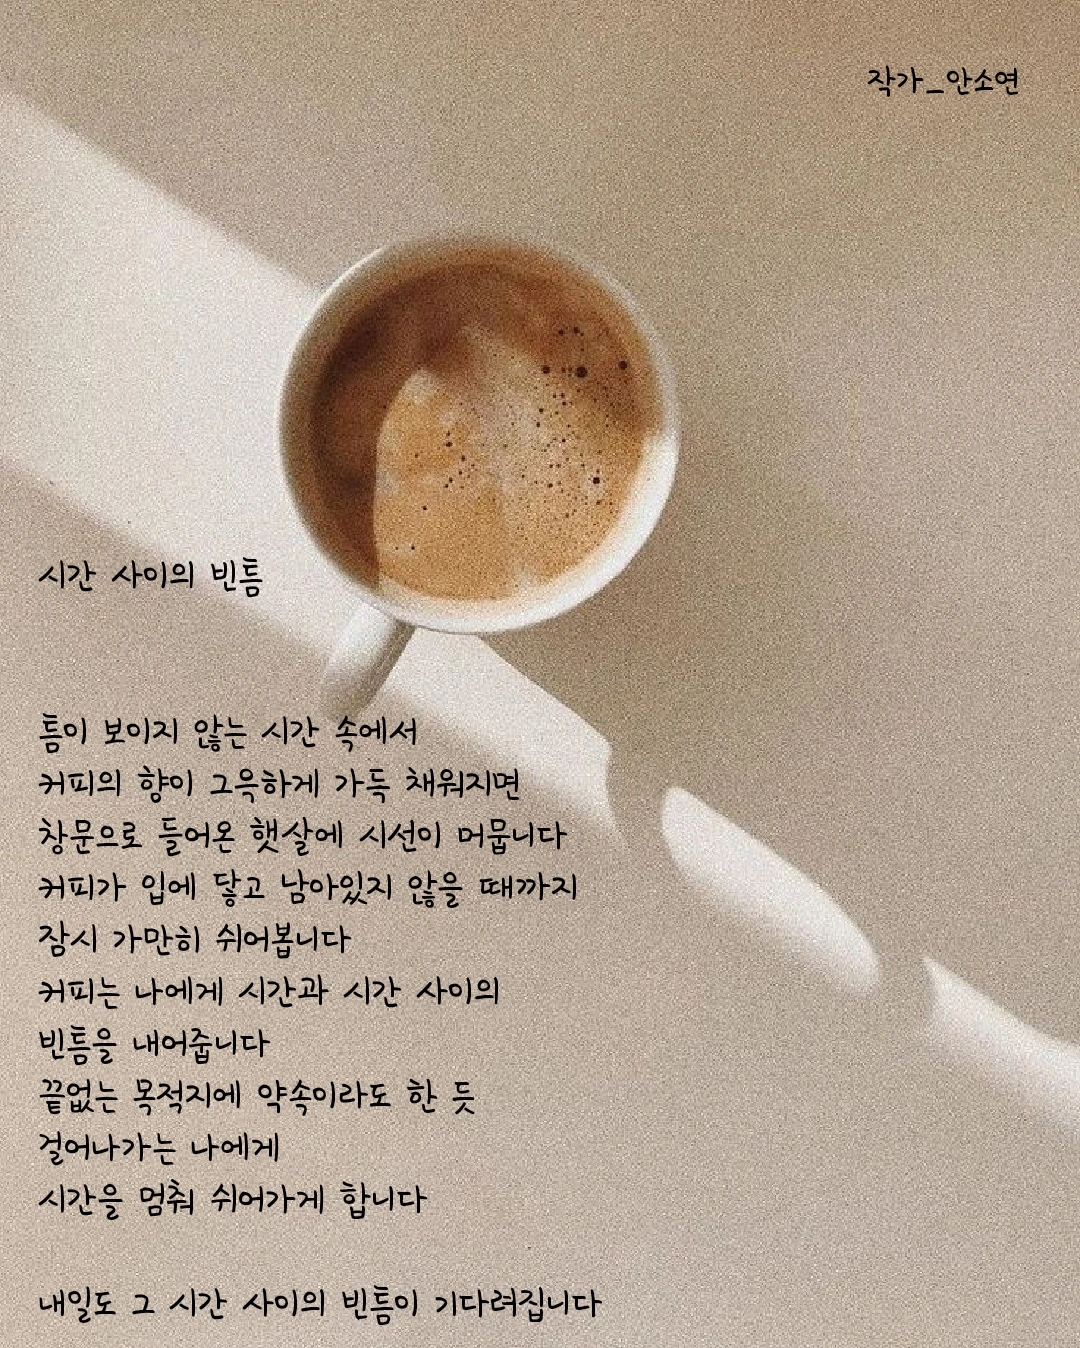 작가_안소연
시간 사이의 빈틈
틈이 보이지 않는 시간 속에서
커피의 향이 그윽하게 가득 채워지면
창문으로 들어온 햇살에 시선이 머뭅니다
커피가 입에 닿고 남아있지 않을 때까지
잠시 가만히 쉬어봅니다
커피는 나에게 시간과 시간 사이의
빈틈을 내어줍니다
끝없는 목적지에 약속이라도 한 듯
걸어나가는 나에게
시간을 멈춰 쉬어가게 합니다
내일도 그 시간 사이의 빈틈이 기다려집니다